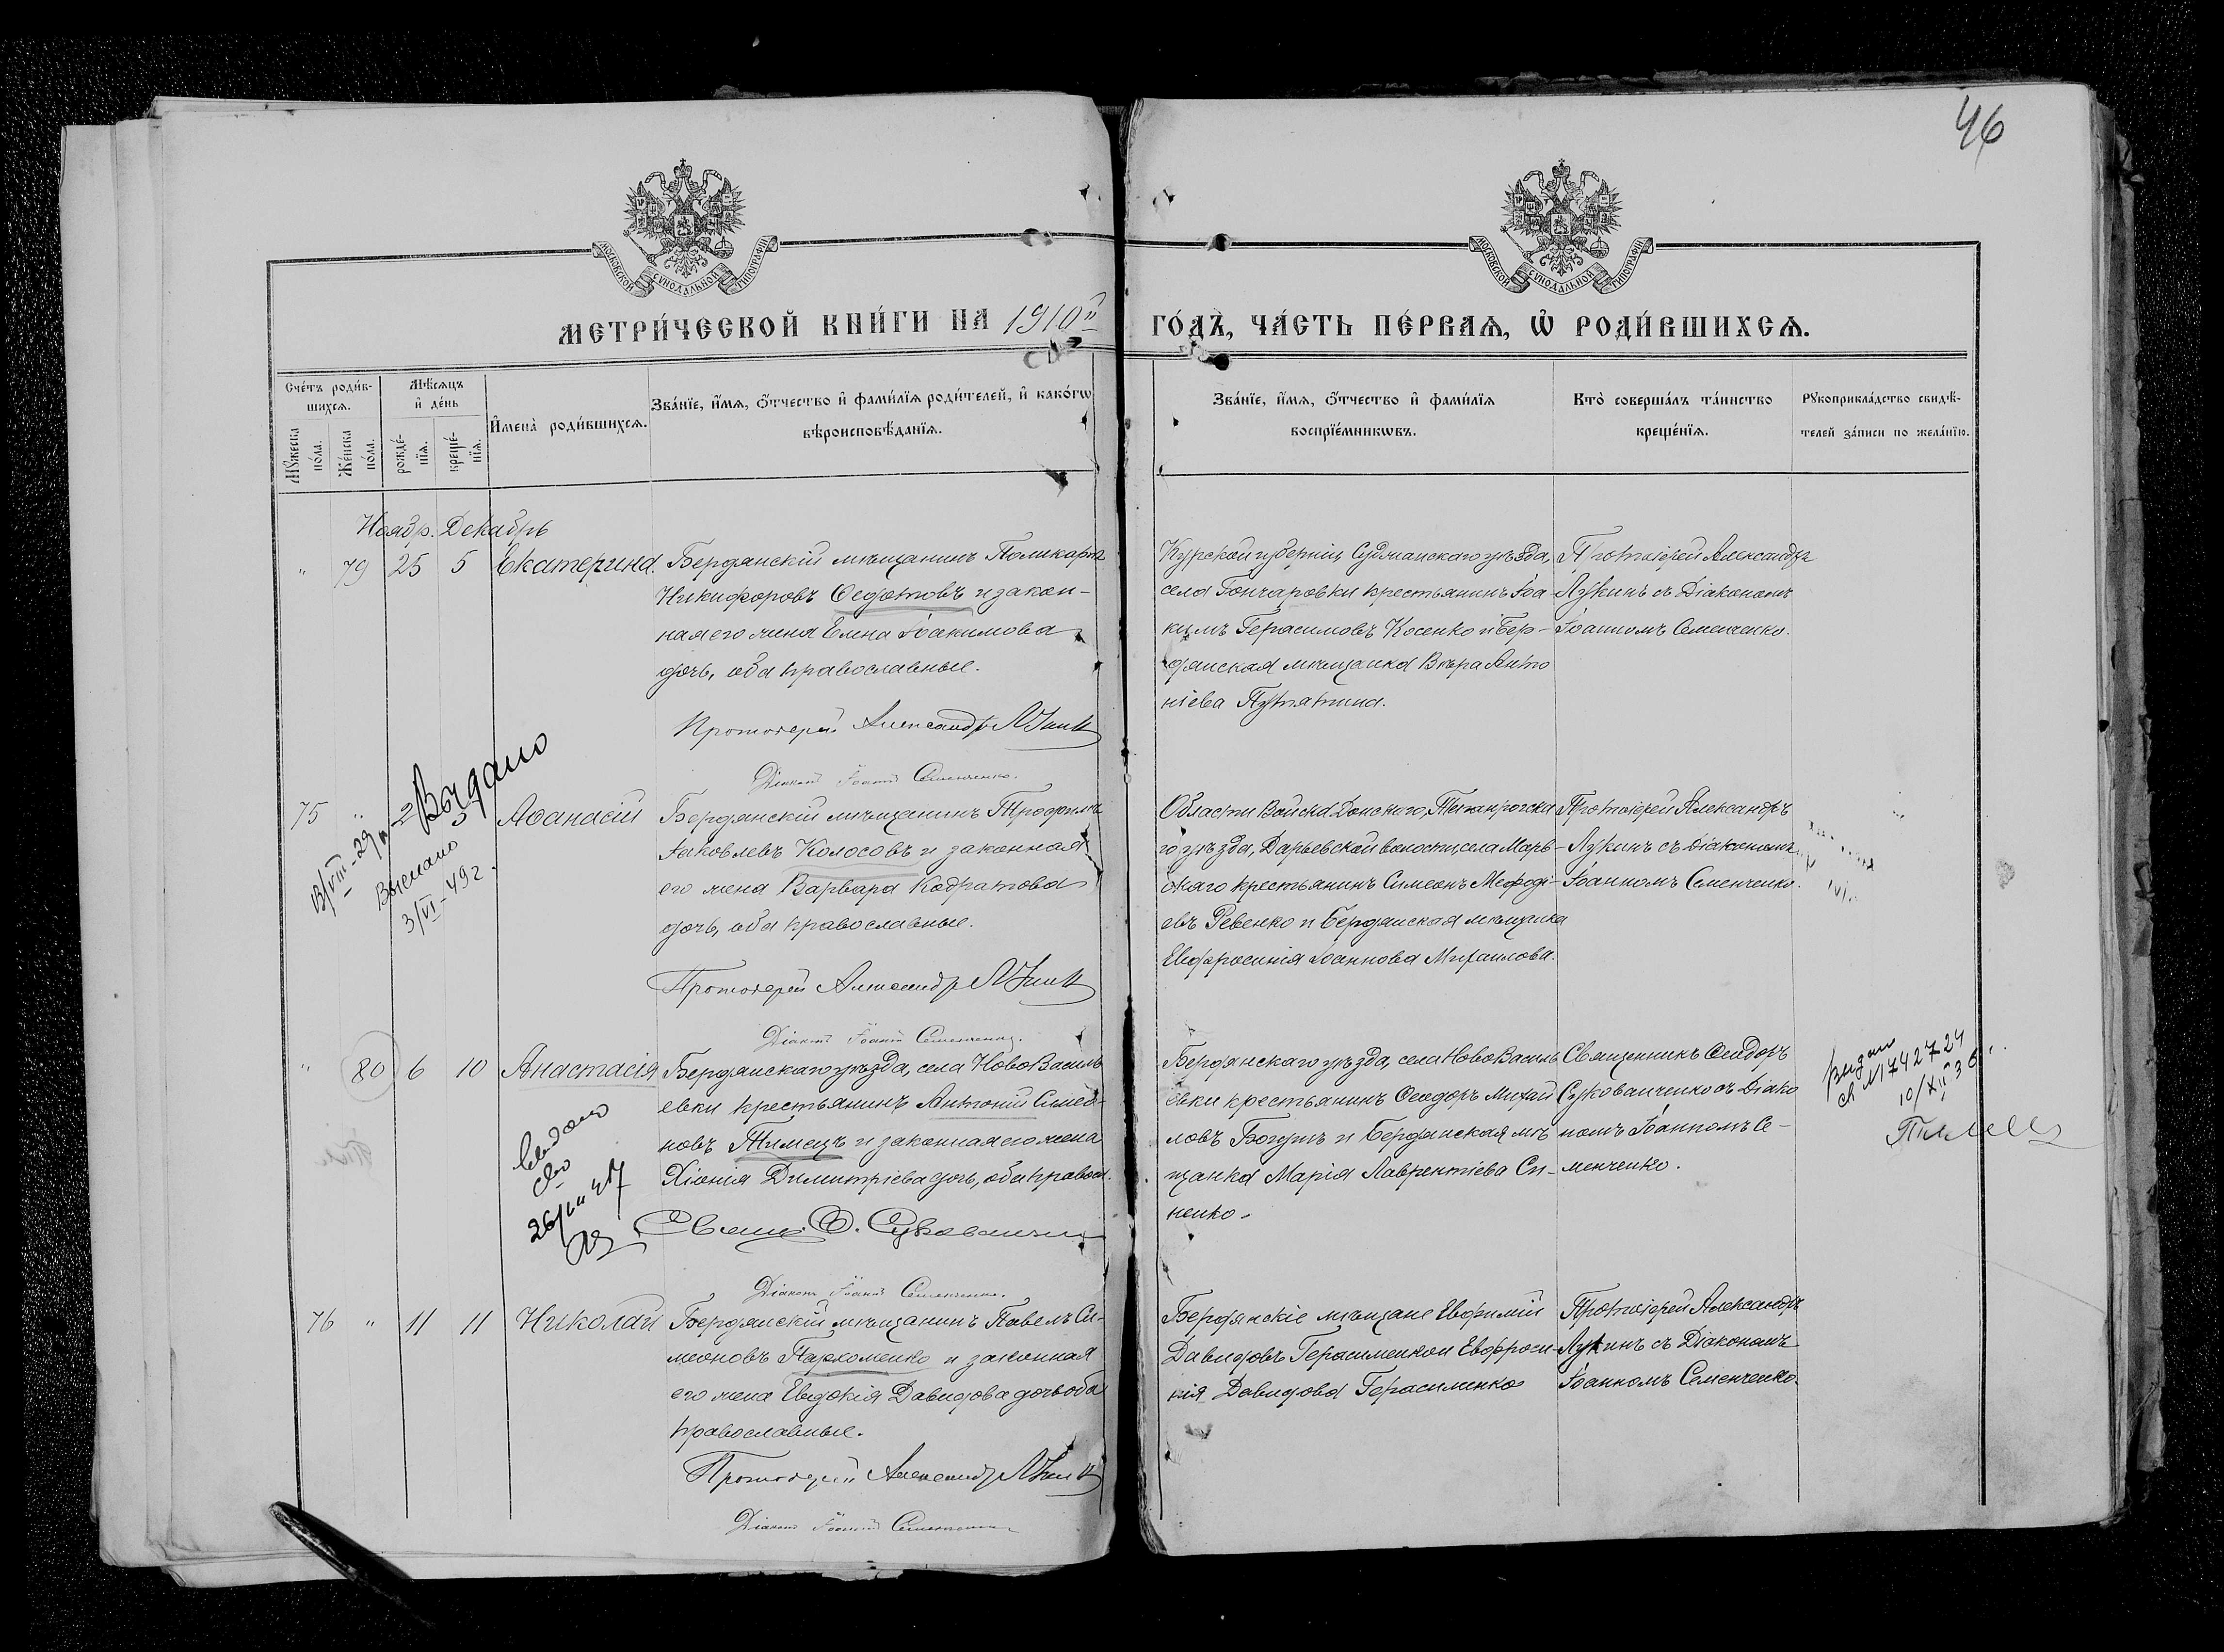 46
МОСКОВСКОЙ СѴНОДАЛЬНОЙ ТИПОГРАФІИ
МОСКОВСКОЙ СѴНОДАЛЬНОЙ ТИПОГРАФІИ
МЕТРИ́ЧЕСКОЙ КНИ́ГИ НА 1910й
ГО́ДЪ, ЧА́СТЬ ПЕ́РВАѦ, Ѡ҆ РОДИ́ВШИХСѦ.
Сче́тъ роди́в-
шихсѧ.
Мꙋ́жеска по́ла.
Же́нска по́ла.
Мѣ́сѧцъ
и҆ де́нь
рожде́-
нїѧ.
креще́-
нїѧ.
И҆мена̀ роди́вшихсѧ.
Зва́нїе, и҆́мѧ, ѻ҆́тчество и҆ фами́лїѧ роди́телей, и҆ како́гѡ
вѣроисповѣ́данїѧ.
Зва́нїе, и҆́мѧ, ѻ҆́тчество и҆ фами́лїѧ
воспрїе́мникѡвъ.
Кто̀ соверша́лъ та́инство
креще́нїѧ.
Рꙋкоприкла́дство свидѣ́-
телей за́писи по жела́нїю.
Ноябр. Декабрь
" 79 25 5 Екатерина.
Бердянскій мѣщанинъ Поликарпъ
Никифоровъ Ѳедотовъ и закон-
ная его жена Елена Іоакимова
дочь, оба православные.
Протоіерей Александръ Лукинъ
Діаконъ Іоаннъ Семенченко.
Курской губерніи, Суджанскаго уѣзда,
села Гончаровки крестьянинъ Іоа-
кимъ Герасимовъ Косенко и Бер-
дянская мѣщанка Вѣра Анто
ніева Путятина.
Протоіерей Александръ
Лукинъ съ Діакономъ
Іоанномъ Семенченко.
75 " 2 5 Аѳанасій
Выдано
13/VIII-29 г
Выслано
3/VI-49 г.
Бердянскій мѣщанинъ Трофимъ
Іаковлевъ Колосовъ и законная
его жена Варвара Кодратова
дочь, оба православные.
Протоіерей Александръ Лукинъ
Діаконъ Іоаннъ Семенченко.
Области Войска Донского, Таганрогска
го уѣзда, Дарьевской волости, села Марь-
скаго крестьянинъ Симеонъ Меѳоді-
евъ Ревенко и Бердянская мѣщанка
Евфросинія Іоаннова Михаилова.
Протоіерей Александръ
Лукинъ съ діакономъ
Іоанномъ Семенченко.
" 80 6 10 Анастасія
Бердянскаго уѣзда, села НовоВасиль
евки крестьянинъ Антоній Симео-
новъ Тимецъ и законная его жена
Хіонія Димитріева дочь, оба правосл.
Діаконъ Іоаннъ Семенченко.
Бердянскаго уѣзда, села НовоВасиль
евки крестьянинъ Ѳеодоръ Михаи
ловъ Богутъ и Бердянская мѣ
щанка Марія Лаврентіева Си-
ненко.
Священникъ Ѳеодоръ
Сукованченко съ Діако
номъ Іоанномъ Се-
менченко.
76 " 11 11 Николай
Бердянскій мѣщанинъ Павелъ Си-
меоновъ Пархоменко и законная
его жена Евдокія Давидова дочь оба
православные.
Протоіерей Александръ Лукинъ
Діаконъ Іоаннъ Семенченко
Бердянскіе мѣщане Евфимій
Давидовъ Герасименко и Евфроси-
нія Давидова Герасименко
Протоіерей Александръ
Лукинъ съ Діакономъ
Іоанномъ Семенченко.